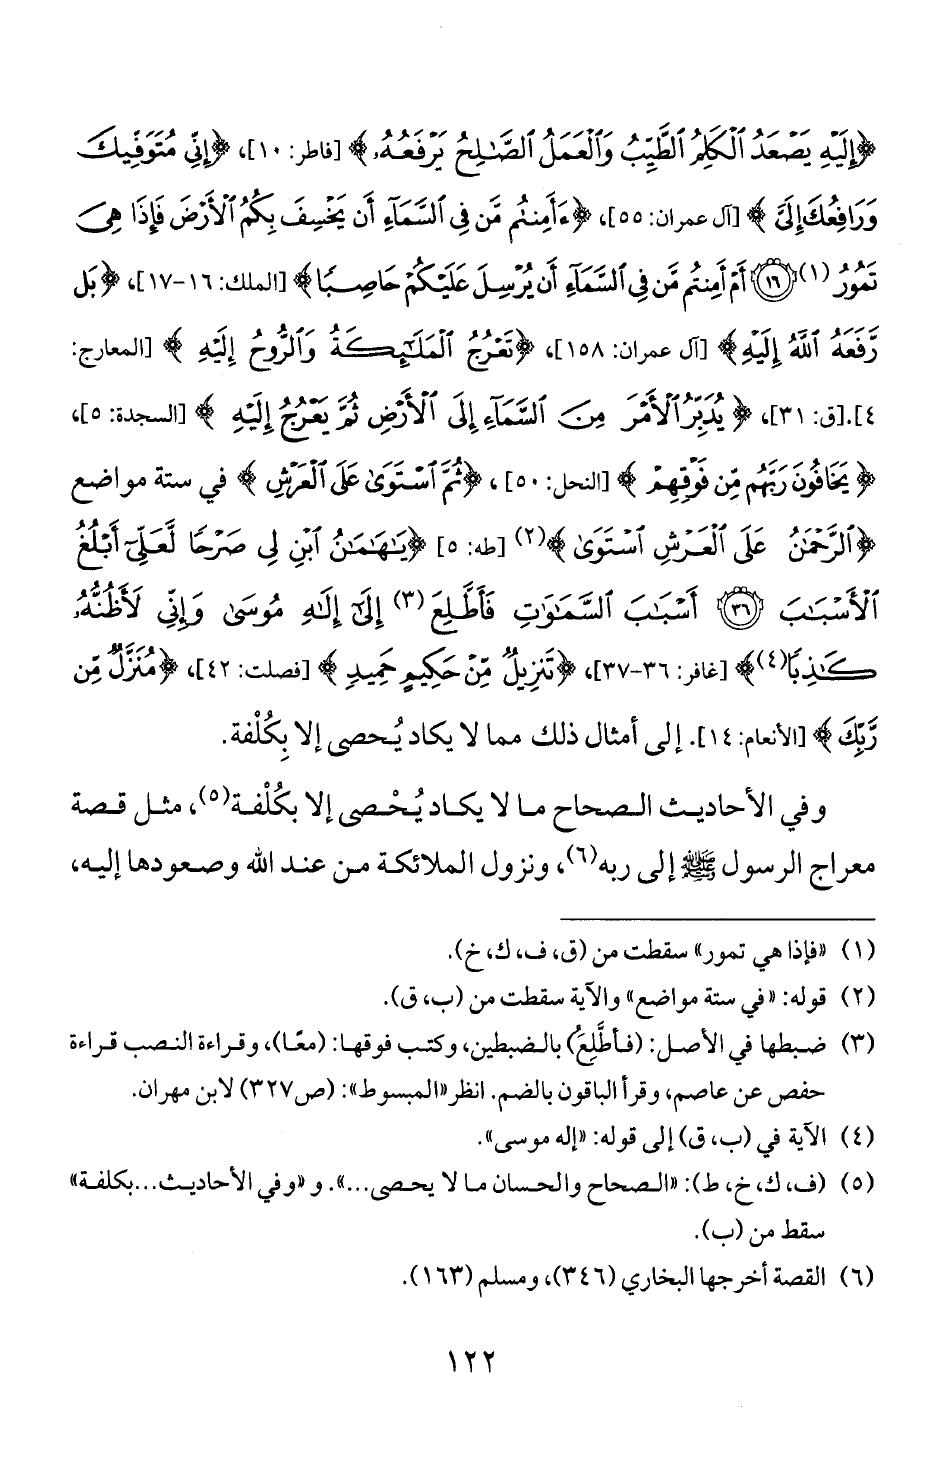 ﴿إِلَيْهِ يَصْعَدُ ٱلْكَلِمُ ٱلطَّيِّبُ وَٱلْعَمَلُ ٱلصَّٰلِحُ يَرْفَعُهُۥ﴾ [فاطر: ١٠]، ﴿إِنِّي مُتَوَفِّيكَ
وَرَافِعُكَ إِلَيَّ﴾ [آل عمران: ٥٥]، ﴿ءَأَمِنتُم مَّن فِي ٱلسَّمَآءِ أَن يَخْسِفَ بِكُمُ ٱلْأَرْضَ فَإِذَا هِيَ
تَمُورُ(١) ۝١٦ أَمْ أَمِنتُم مَّن فِي ٱلسَّمَآءِ أَن يُرْسِلَ عَلَيْكُمْ حَاصِبًا﴾ [الملك: ١٦-١٧]، ﴿بَل
رَّفَعَهُ ٱللَّهُ إِلَيْهِ﴾ [آل عمران: ١٥٨]، ﴿تَعْرُجُ ٱلْمَلَٰٓئِكَةُ وَٱلرُّوحُ إِلَيْهِ﴾ [المعارج:
٤].[ق: ٣١]، ﴿يُدَبِّرُ ٱلْأَمْرَ مِنَ ٱلسَّمَآءِ إِلَى ٱلْأَرْضِ ثُمَّ يَعْرُجُ إِلَيْهِ﴾ [السجدة: ٥]،
﴿يَخَافُونَ رَبَّهُم مِّن فَوْقِهِمْ﴾ [النحل: ٥٠]، ﴿ثُمَّ ٱسْتَوَىٰ عَلَى ٱلْعَرْشِ﴾ في ستة مواضع
﴿ٱلرَّحْمَٰنُ عَلَى ٱلْعَرْشِ ٱسْتَوَىٰ﴾(٢) [طه: ٥] ﴿يَٰهَٰمَٰنُ ٱبْنِ لِي صَرْحًا لَّعَلِّيٓ أَبْلُغُ
ٱلْأَسْبَٰبَ ۝٣٦ أَسْبَٰبَ ٱلسَّمَٰوَٰتِ فَأَطَّلِعَ(٣) إِلَىٰٓ إِلَٰهِ مُوسَىٰ وَإِنِّي لَأَظُنُّهُۥ
كَٰذِبًا(٤)﴾ [غافر: ٣٦-٣٧]، ﴿تَنزِيلٌ مِّنْ حَكِيمٍ حَمِيدٍ﴾ [فصلت: ٤٢]، ﴿مُنَزَّلٌ مِّن
رَّبِّكَ﴾ [الأنعام: ١٤]. إلى أمثال ذلك مما لا يكاد يُحصى إلا بِكُلْفة.
وفي الأحاديث الصحاح ما لا يكاد يُحْصى إلا بكُلْفة(٥)، مثل قصة
معراج الرسول ﷺ إلى ربه(٦)، ونزول الملائكة من عند الله وصعودها إليه،
(١) «فإذا هي تمور» سقطت من (ق، ف، ك، خ).
(٢) قوله: «في ستة مواضع» والآية سقطت من (ب، ق).
(٣) ضبطها في الأصل: (فأطَّلِعَُ) بالضبطين، وكتب فوقها: (معًا)، وقراءة النصب قراءة
حفص عن عاصم، وقرأ الباقون بالضم. انظر «المبسوط»: (ص٣٢٧) لابن مهران.
(٤) الآية في (ب، ق) إلى قوله: «إله موسى».
(٥) (ف، ك، خ، ط): «الصحاح والحسان ما لا يحصى...». و «وفي الأحاديث...بكلفة»
سقط من (ب).
(٦) القصة أخرجها البخاري (٣٤٦)، ومسلم (١٦٣).
١٢٢